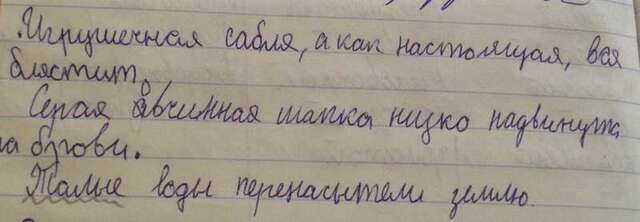 Игрушечная сабля, а как настоящая, вся
блястит.
Серая овчинная шапка низко надвинута
на брови.
Талые воды перенасытели землю.